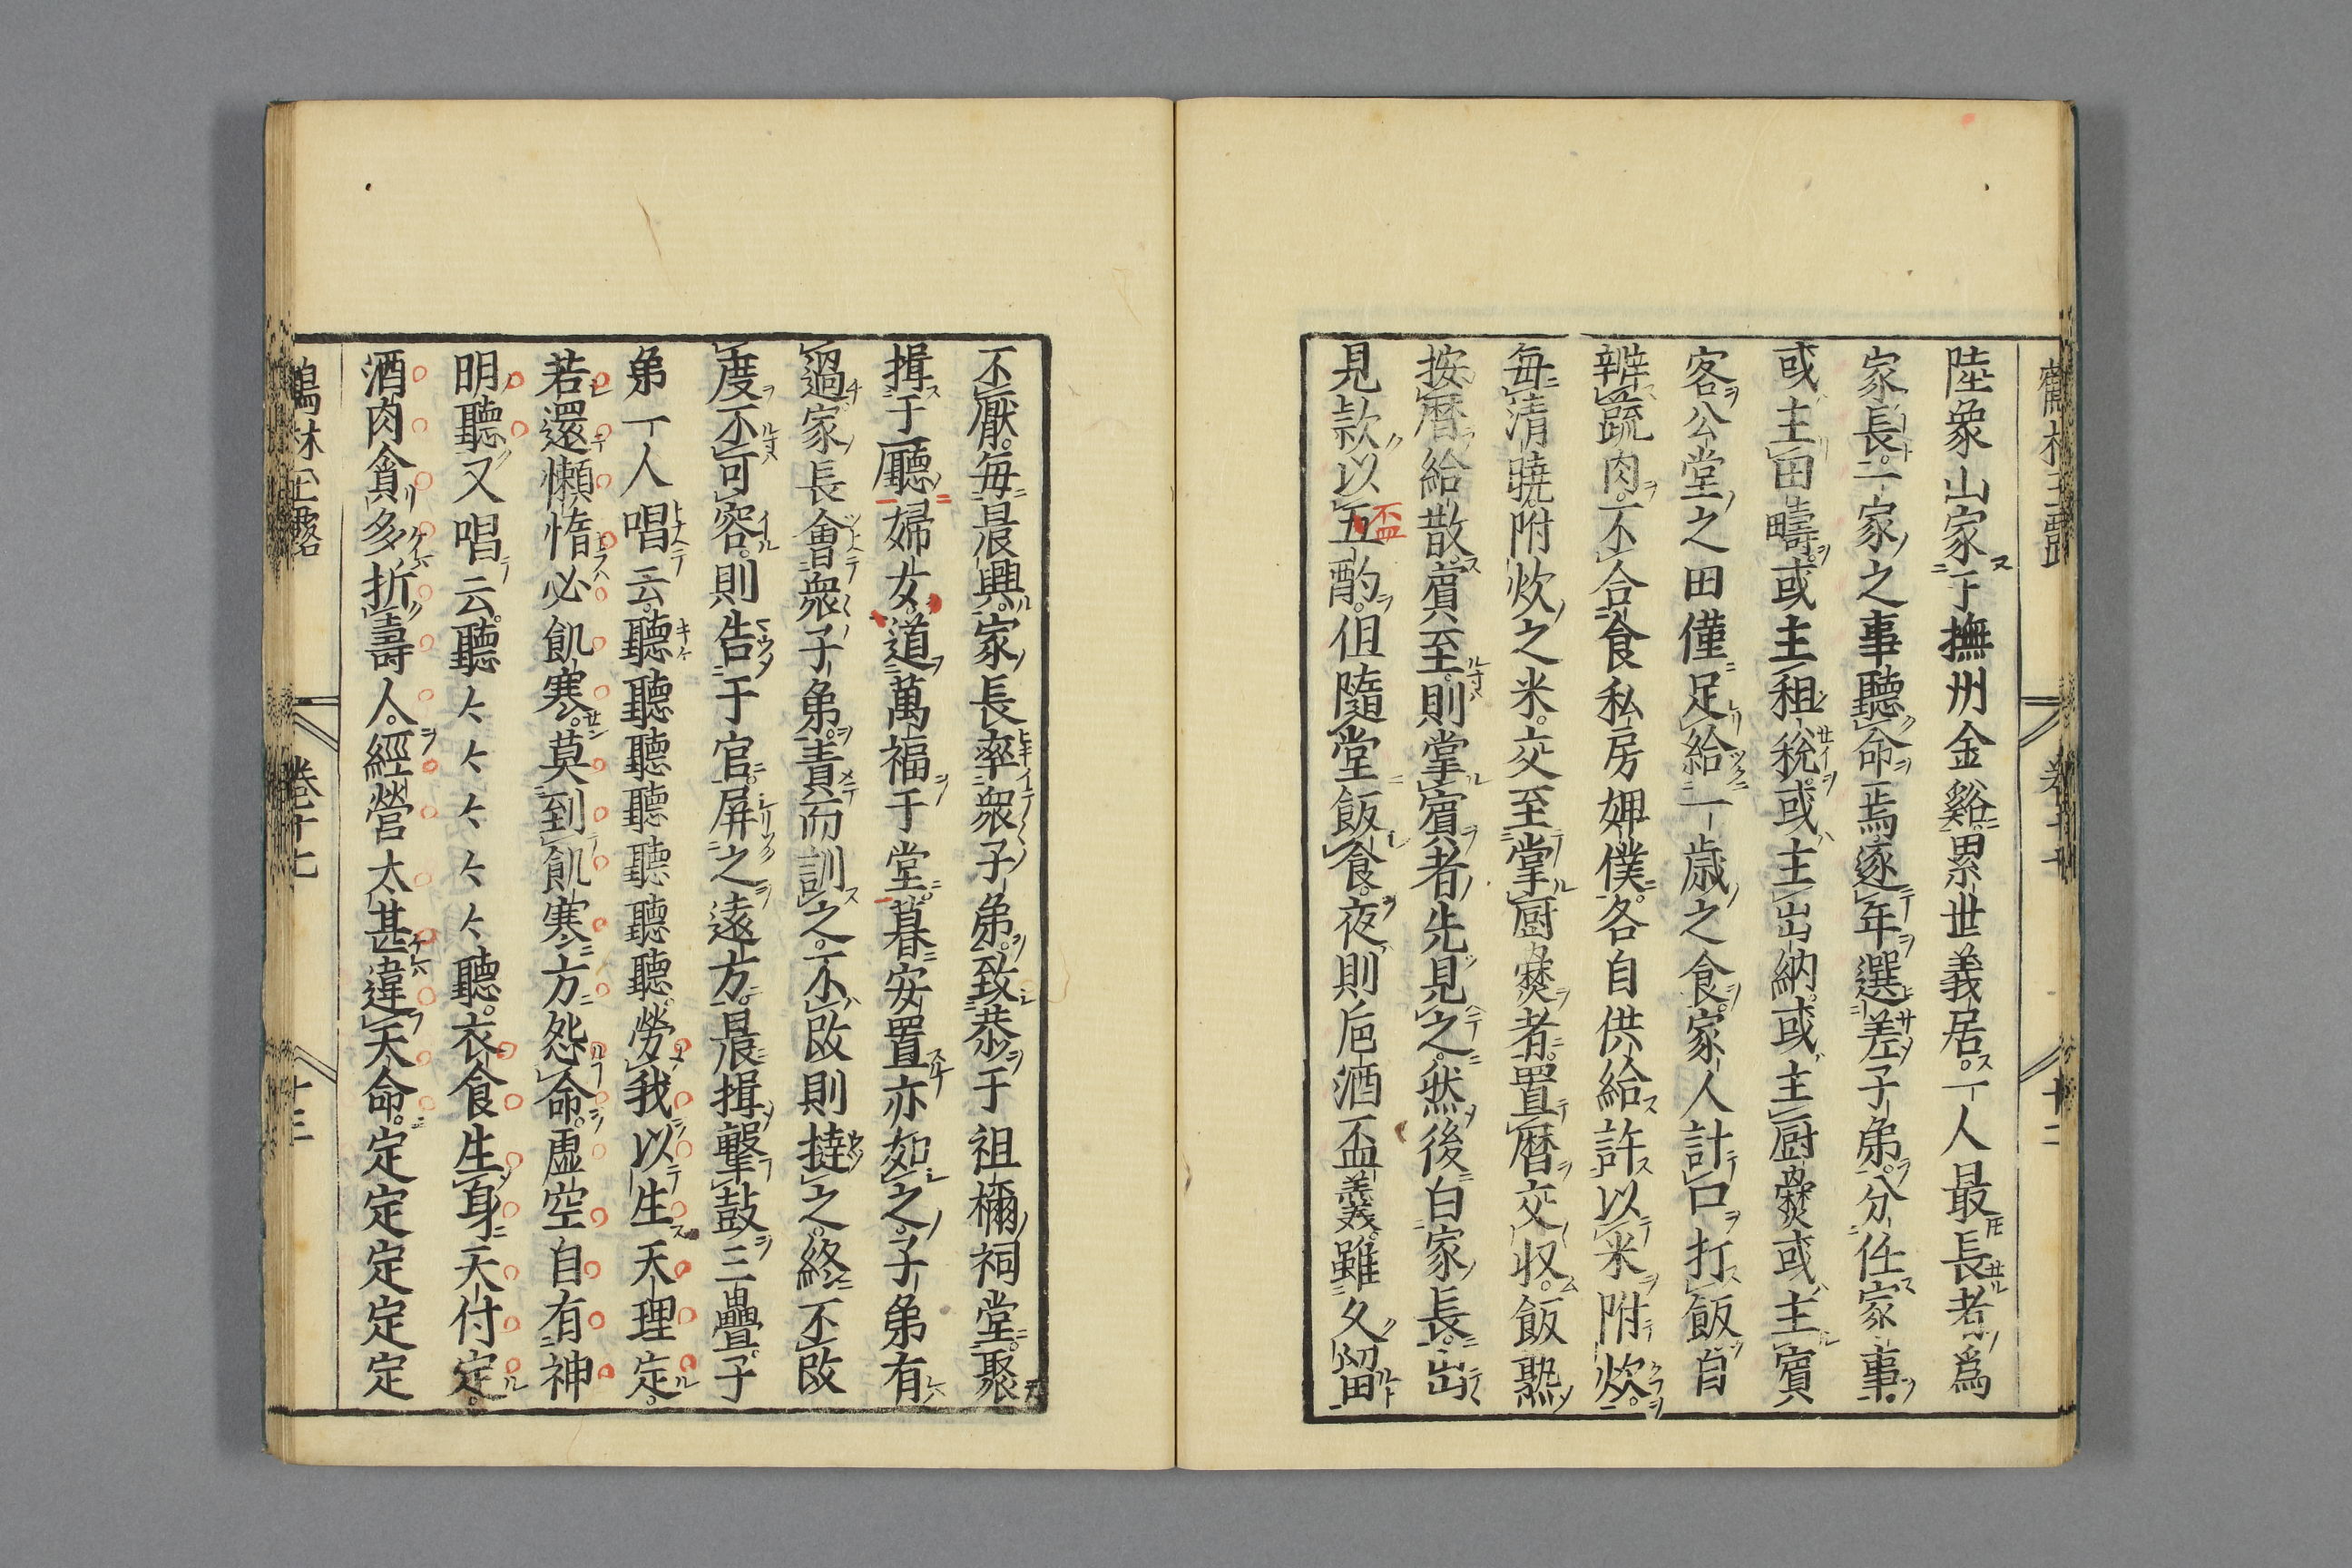 鶴林玉露
卷十七
十二
陸象山家于撫州金谿累世義居一人最長者爲
家長一家之事聽命焉逐年選差子弟分任家事
或主田疇或主租稅或主出納或主厨爨或主賓
客公堂之田僅足給一歲之食家人計口打飯自
辨蔬肉不合食私房婢僕各自供給許以米附炊
每清曉附炊之米交至掌厨爨者置曆交收飯熟
按曆給散賓至則掌賓者先見之然後白家長出
見款以五酌但隨堂飯食夜則巵酒盃羹雖久留
盃
不厭每晨興家長率衆子弟致恭于祖禰祠堂聚
揖于廳婦女道萬福于堂暮安置亦如之子弟有
過家長會衆子弟責而訓之不改則撻之終不改
度不可容則告于官屏之遠方晨揖擊鼓三疊子
弟一人唱云聽聽聽聽聽聽聽勞我以生天理定
若還懶惰必飢寒莫到飢寒方怨命虛空自有神
明聽又唱云聽〻〻〻〻〻聽衣食生身天付定
酒肉貪多折壽人經營太甚違天命定定定定定
鶴林玉露
卷十七
十三